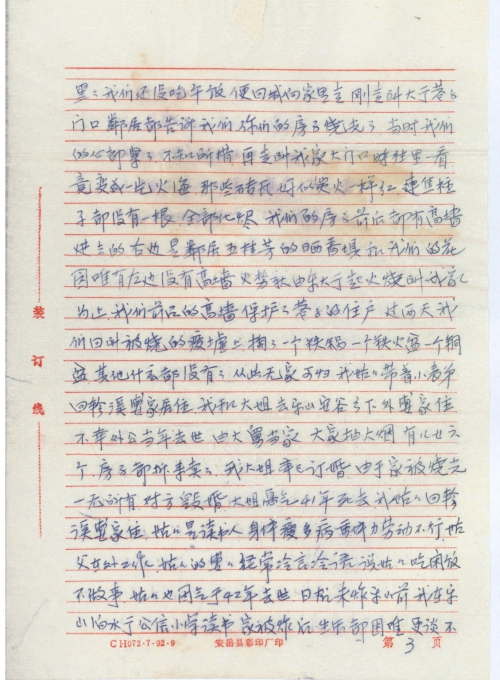 黑：我们还没吃午饭 便回城向家里走 刚走到大于巷子
门口 邻居都告诉我们 你们的房子烧光了 当时我们
的心都要 不知所措 再走到我家大门口时往里一看
竟变成一片火海 那些砖瓦好似炭火一样红 连焦柱
子都没有一根 全部化烬 我们的房子前后都有高墙
进去的右边是邻居 的晒 坝和我们的花
园 唯有左边没有高墙 火势就由东大于 火烧到我家
为止 我们前后的高墙保护了巷子的住户 过两天我
们回到被烧的废墟上 掏了一个铁锅 一个铁火盆 一个铜
盆 其他什么都没有了 从此无家可归 我姑姑带着小表弟
回 溪婆家居住 我和大姐去乐山安谷乡下外婆家住
不幸外公当年去世 由大舅当家 大家抽大烟 有儿女六
个 房子都拆弄卖了 我大姐事已订婚 由于家被烧光
一无所有 对方毁婚 大姐愚气41年死去 我姑姑回
溪婆家住 姑姑是读书人 身体瘦多病重体力劳动不行 姑
父在外工作 姑姑的婆婆经常冷言冷语 说姑姑吃闲饭
不做事 姑姑也因气于42年去世 日机来炸乐山前 我在乐
山 水于公信小学读书 家被炸后 生活都困难 更谈不
装订线
CH072·7·92·9 安岳县彩印厂印 第 3 页